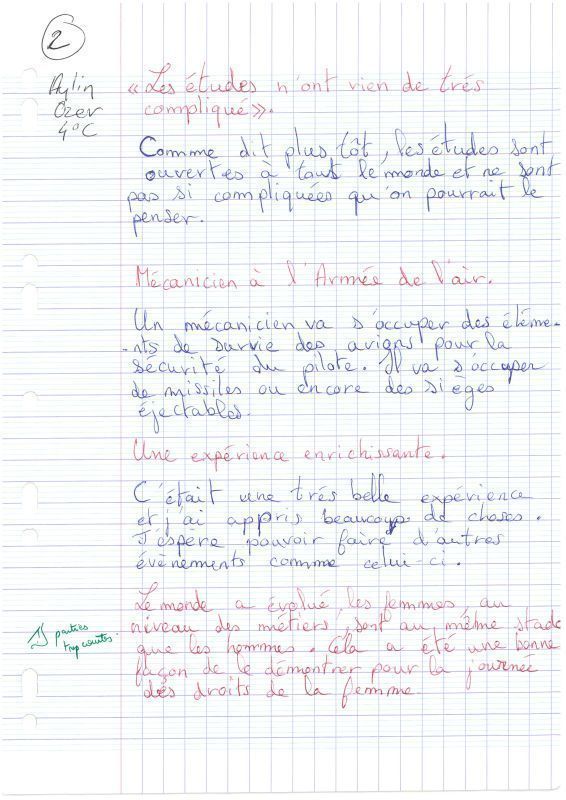 2
Aylin
Ozer
4°C
« Les études n'ont rien de trés
compliqué ».
Comme dit plus tôt, les études sont
ouvertes à tout le monde et ne sont
pas si compliquées qu'on pourrait le
penser.
Mécanicien à l'Armée de l'air.
Un mécanicien va s'occuper des éléme-
-nts de survie des avions pour la
sécurité du pilote. Il va s'occuper
de missiles ou encore des sièges
éjectables.
Une expérience enrichissante.
C'était une trés belle expérience
et j'ai appris beaucoup de choses.
J'espère pouvoir faire d'autres
évènements comme celui-ci.
Le monde a évolué, les femmes, au
niveau des métiers, sont au même stade
que les hommes. Cela a été une bonne
façon de le démontrer pour la journée
des droits de la femme
parties
trop courtes.